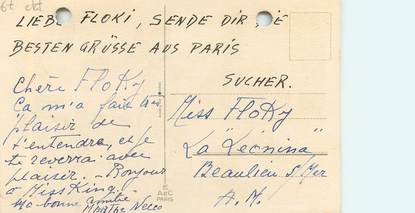 6t Okt
LIEBE FLOKI, SENDE DIR DIE
BESTEN GRÜSSE AUS PARIS
SUCHER.
Chère FloKy
Ça m'a fait très
plaisir de
t'entendre, et je
te reverrai avec
plaisir. - Bonjour
à Miss King.
ma bonne amitié
Marthe
Miss FloKy
La "Leonina"
Beaulieu s/Mer
A. M.
AéC
PARIS